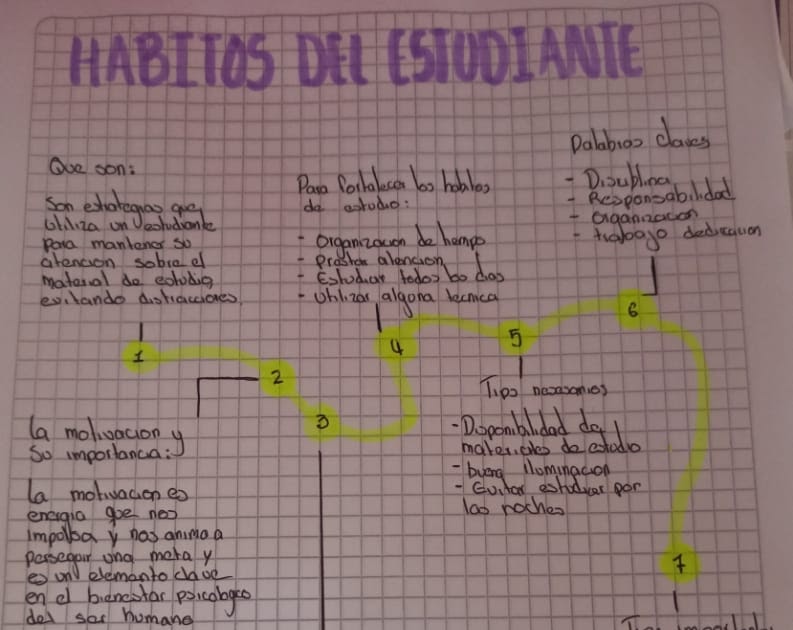 HABITOS DEL ESTUDIANTE
Que son:
Son estrategias que
utiliza un estudiante
para mantener su
atencion sobre el
material de estudio
evitando distracciones.
1
2
La motivacion y
su importancia:
La motivacion es
energia que nos
impulsa y nos anima a
perseguir una meta y
es un elemento clave
en el bienestar psicologico
del ser humano
3
Para fortalecer los habitos
de estudio:
- Organizacion de tiempo
- Prestar atencion
- Estudiar todos los dias
- Utilizar alguna tecnica
4
5
Tips necesarios
- Disponibilidad de
materiales de estudio
- buena iluminacion
- Evitar estudiar por
las noches
Palabras claves
- Disciplina
- Responsabilidad
- Organizacion
- trabajo dedicacion
6
7